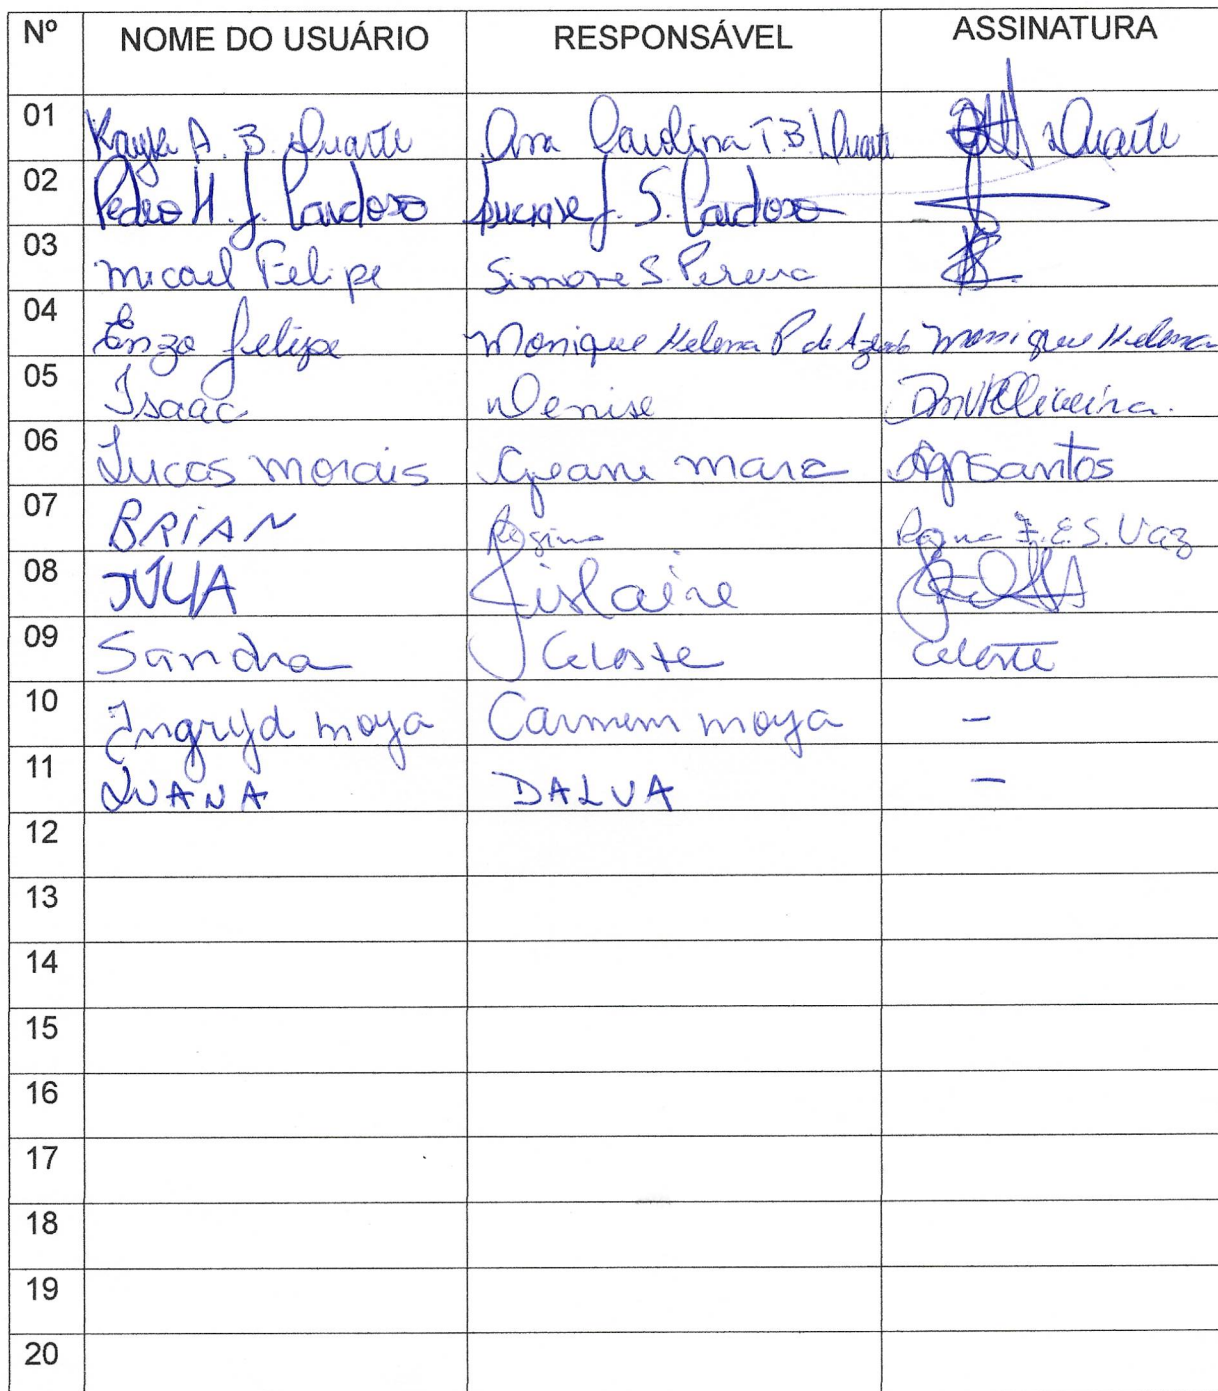 Nº NOME DO USUÁRIO RESPONSÁVEL ASSINATURA
01 Kayke A. B. Duarte Ana Carolina T. B. Duarte Duarte
02 Pedro H. J. Cardoso J. S. Cardoso
03 Micael Felipe Simone S. Pereira
04 Enzo Felipe Monique Helena P de Azevedo Monique Helena
05 Isaac Denise
06 Lucas Morais Geane Mara
07 BRIAN Regina F. E. S. Vaz
08 JÚLIA Gislaine
09 Sandra Celoste Celeste
10 Ingryd moya Carmem moya –
11 LUANA DALVA –
12
13
14
15
16
17
18
19
20